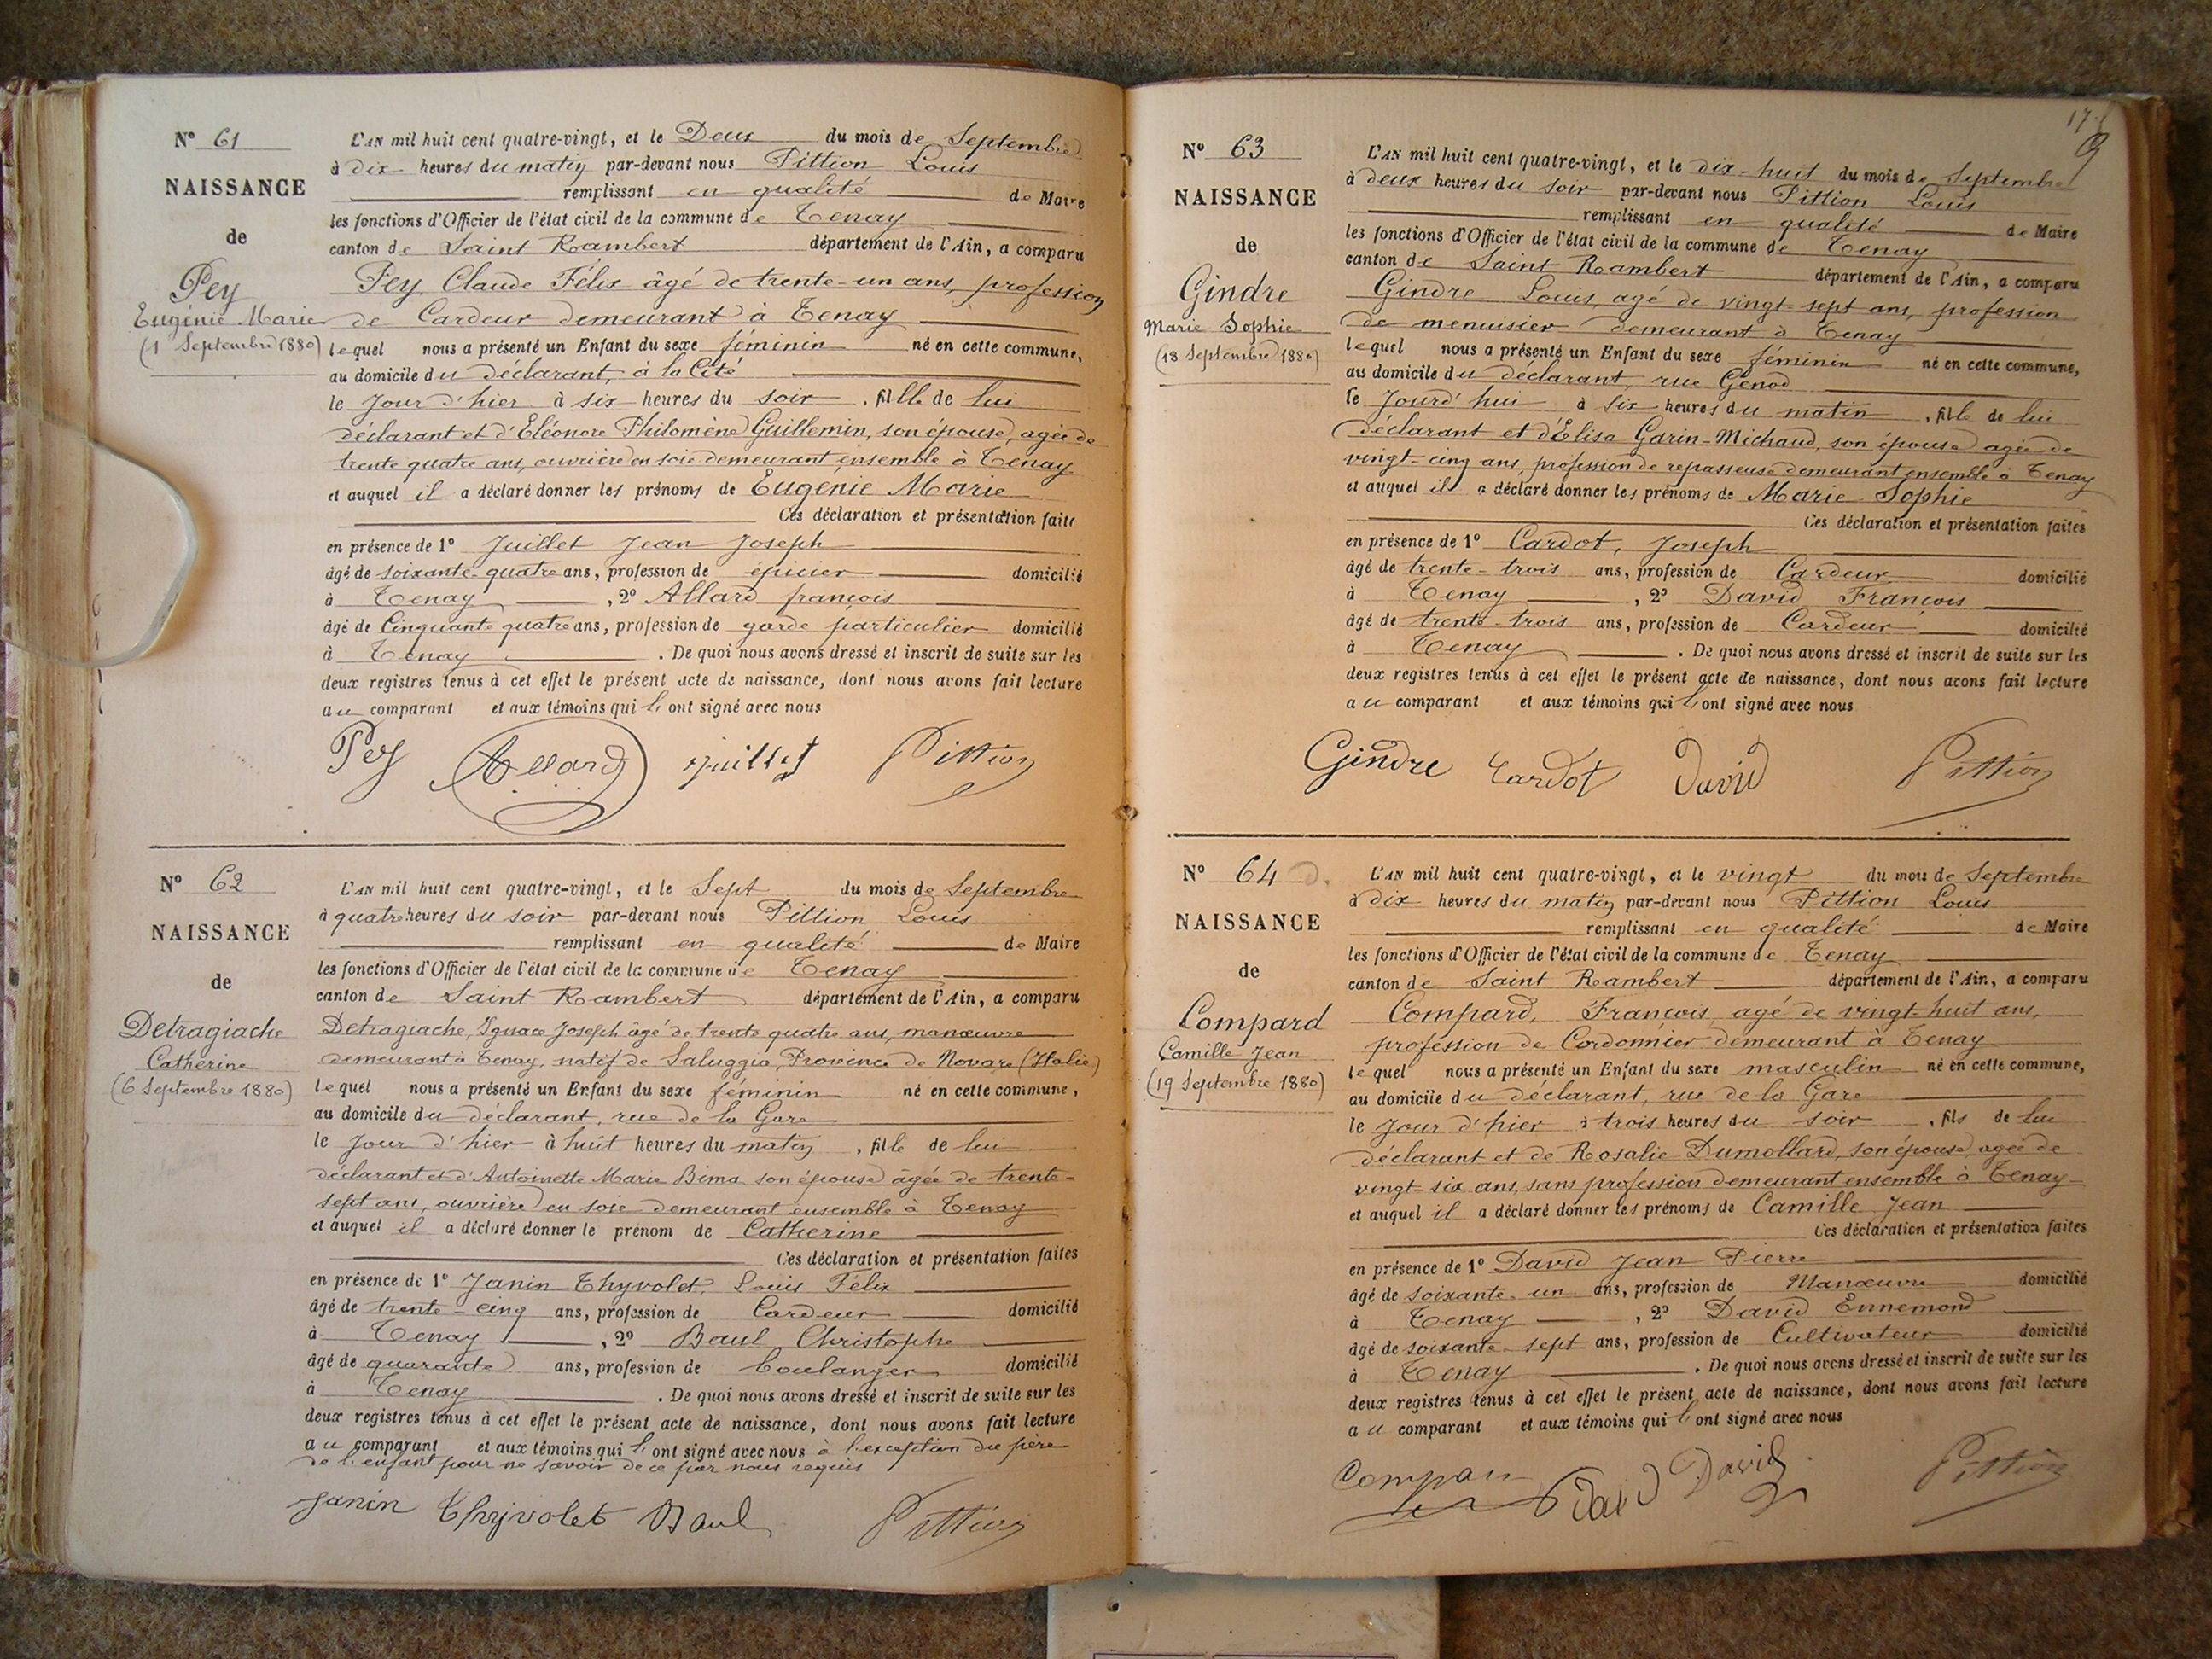 N° 61
NAISSANCE
de
Pey
Eugénie Marie
(1 Septembre 1880)
L'AN mil huit cent quatre-vingt, et le Deux du mois de Septembre
à dix heures du matin par-devant nous Pittion Louis
remplissant en qualité de Maire
les fonctions d'Officier de l'état civil de la commune de Tenay
canton de Saint Rambert département de l'Ain, a comparu
Pey Claude Félix âgé de trente-un ans, profession
de Cardeur demeurant à Tenay
lequel nous a présenté un Enfant du sexe féminin né en cette commune,
au domicile du déclarant, à la Cité
le jour d'hier à six heures du soir, fille de lui
déclarant et d'Eléonore Philomène Guillemin, son épouse, agée de
trente quatre ans, ouvrière en soie demeurant ensemble à Tenay
et auquel il a déclaré donner les prénoms de Eugénie Marie
Ces déclaration et présentation faites
en présence de 1° Juillet Jean Joseph
âgé de soixante-quatre ans, profession de épicier domicilié
à Tenay, 2° Allard françois
âgé de Cinquante quatre ans, profession de garde particulier domicilié
à Tenay. De quoi nous avons dressé et inscrit de suite sur les
deux registres tenus à cet effet le présent acte de naissance, dont nous avons fait lecture
au comparant et aux témoins qui l'ont signé avec nous
Pey Allard Juillet Pittion
N° 62
NAISSANCE
de
Detragiache
Catherine
(6 Septembre 1880)
L'AN mil huit cent quatre-vingt, et le Sept du mois de Septembre
à quatre heures du soir par-devant nous Pittion Louis
remplissant en qualité de Maire
les fonctions d'Officier de l'état civil de la commune de Tenay
canton de Saint Rambert département de l'Ain, a comparu
Detragiache, Ignace Joseph âgé de trente quatre ans, manœuvre
demeurant à Tenay, natif de Saluggia, Province de Novare (Italie)
lequel nous a présenté un Enfant du sexe féminin né en cette commune,
au domicile du déclarant, rue de la Gare
le jour d'hier à huit heures du matin, fille de lui
déclarant et d'Antoinette Marie Bima son épouse âgée de trente-
sept ans, ouvrière en soie demeurant ensemble à Tenay
et auquel il a déclaré donner le prénom de Catherine
Ces déclaration et présentation faites
en présence de 1° Janin Thyvolet, Louis Félix
âgé de trente-cinq ans, profession de Cardeur domicilié
à Tenay, 2° Baul Christophe
âgé de quarante ans, profession de boulanger domicilié
à Tenay. De quoi nous avons dressé et inscrit de suite sur les
deux registres tenus à cet effet le présent acte de naissance, dont nous avons fait lecture
au comparant et aux témoins qui l'ont signé avec nous à l'exception du père
de l'enfant pour ne savoir de ce par nous requis
Janin Thyvolet Baul Pittion
N° 63
NAISSANCE
de
Gindre
Marie Sophie
(18 Septembre 1880)
L'AN mil huit cent quatre-vingt, et le dix-huit du mois de Septembre
à deux heures du soir par-devant nous Pittion Louis
remplissant en qualité de Maire
les fonctions d'Officier de l'état civil de la commune de Tenay
canton de Saint Rambert département de l'Ain, a comparu
Gindre Louis, agé de vingt-sept ans, profession
de menuisier demeurant à Tenay
lequel nous a présenté un Enfant du sexe féminin né en cette commune,
au domicile du déclarant, rue Genod
le jourd'hui à six heures du matin, fille de lui
déclarant et d'Élisa Garin-Michaud, son épouse agée de
vingt-cinq ans, profession de repasseuse demeurant ensemble à Tenay
et auquel il a déclaré donner les prénoms de Marie Sophie
Ces déclaration et présentation faites
en présence de 1° Cardot, Joseph
âgé de trente-trois ans, profession de Cardeur domicilié
à Tenay, 2° David François
âgé de trente-trois ans, profession de Cardeur domicilié
à Tenay. De quoi nous avons dressé et inscrit de suite sur les
deux registres tenus à cet effet le présent acte de naissance, dont nous avons fait lecture
au comparant et aux témoins qui l'ont signé avec nous
Gindre Cardot David Pittion
N° 64
NAISSANCE
de
Compard
Camille Jean
(19 Septembre 1880)
L'AN mil huit cent quatre-vingt, et le vingt du mois de Septembre
à dix heures du matin par-devant nous Pittion Louis
remplissant en qualité de Maire
les fonctions d'Officier de l'état civil de la commune de Tenay
canton de Saint Rambert département de l'Ain, a comparu
Compard, François agé de vingt-huit ans,
profession de Cordonnier demeurant à Tenay
lequel nous a présenté un Enfant du sexe masculin né en cette commune,
au domicile du déclarant, rue de la Gare
le jour d'hier à trois heures du soir, fils de lui
déclarant et de Rosalie Dumollard, son épouse, agée de
vingt-six ans, sans profession demeurant ensemble à Tenay
et auquel il a déclaré donner les prénoms de Camille Jean
Ces déclaration et présentation faites
en présence de 1° David Jean Pierre
âgé de soixante-un ans, profession de Manœuvre domicilié
à Tenay, 2° David Ennemond
âgé de soixante-sept ans, profession de Cultivateur domicilié
à Tenay. De quoi nous avons dressé et inscrit de suite sur les
deux registres tenus à cet effet le présent acte de naissance, dont nous avons fait lecture
au comparant et aux témoins qui l'ont signé avec nous
David David Pittion